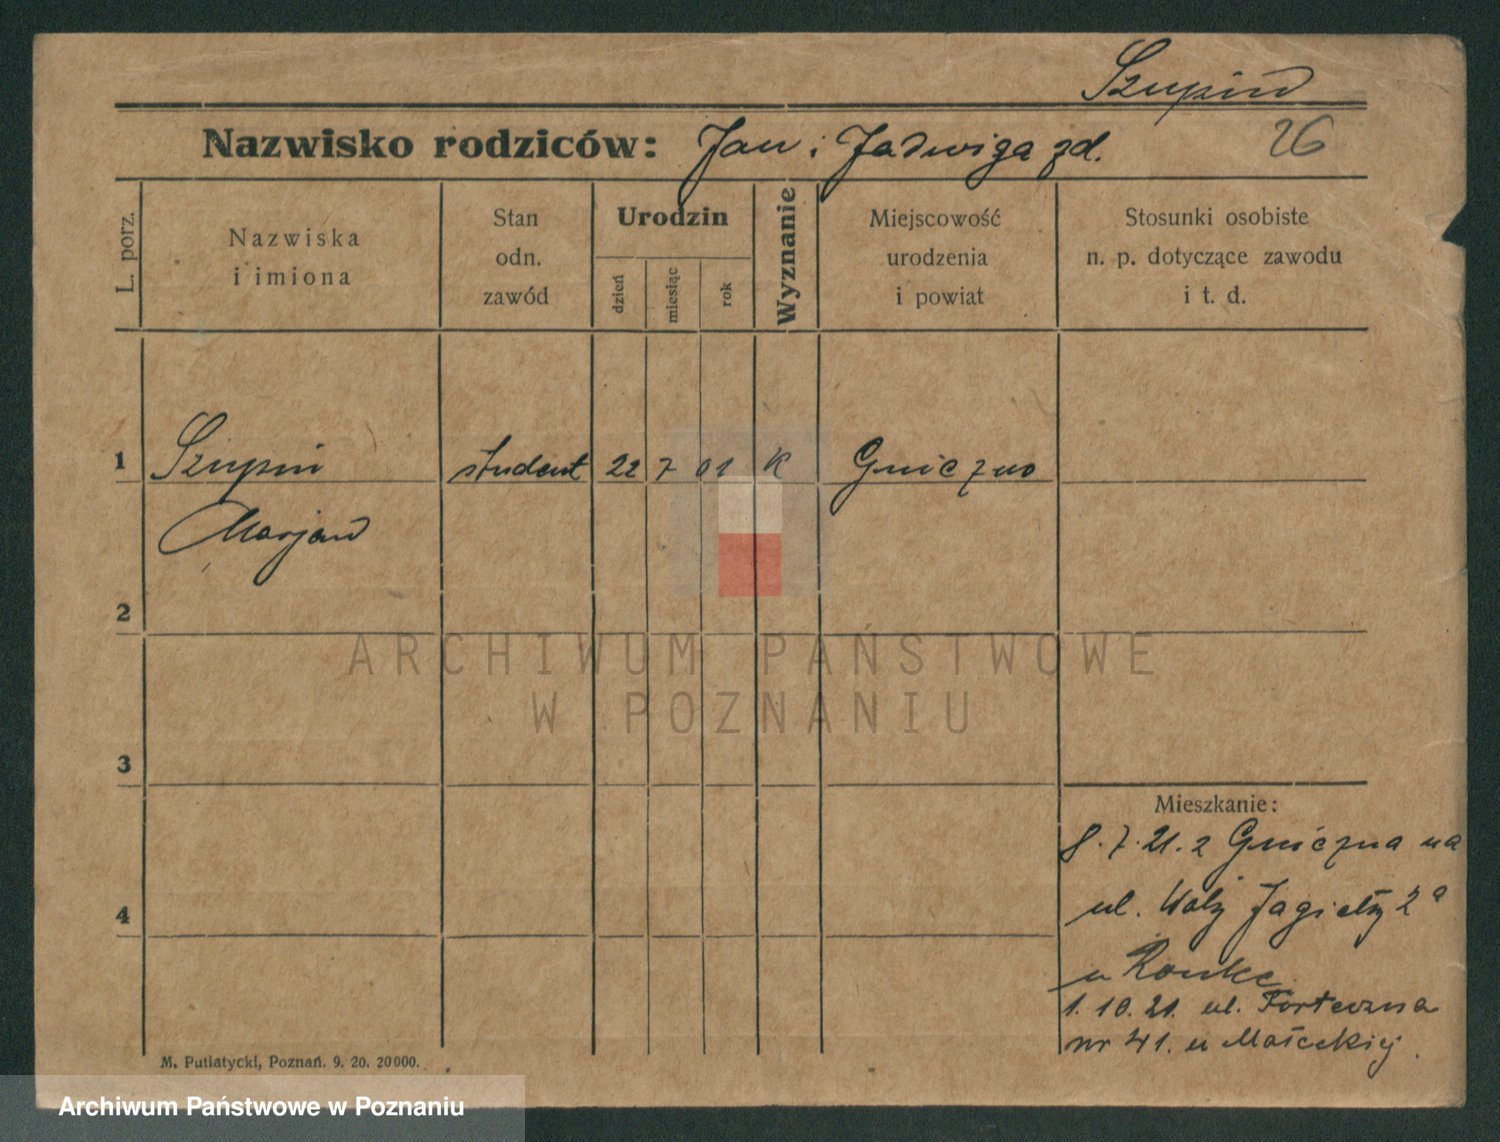 Szupin
Nazwisko rodziców: Jan i Jadwiga zd.
26
L. porz.
Nazwiska
i imiona
Stan
odn.
zawód
Urodzin
dzień
miesiąc
rok
Wyznanie
Miejscowość
urodzenia
i powiat
Stosunki osobiste
n. p. dotyczące zawodu
i t. d.
1 Szupin student 22 7 01 K Gniezno
Marjan
2
3
4
ARCHIWUM PAŃSTWOWE
W POZNANIU
Mieszkanie:
8.7.21. z Gniezna na
ul. Wały Jagiełły 2a
u
1.10.21. ul. Forteczna
nr 41. u Małeckiej.
M. Putiatycki, Poznań. 9. 20. 20000.
Archiwum Państwowe w Poznaniu